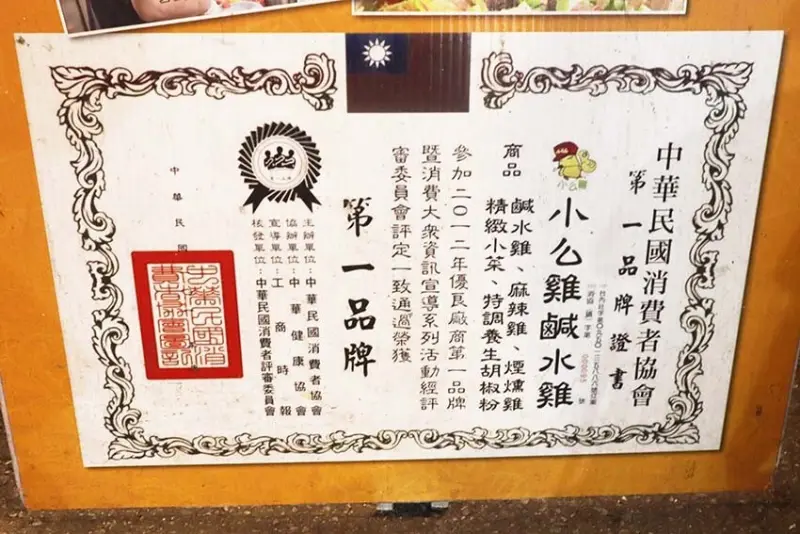 中華民國消費者協會
第一品牌證書
小公雞
小公雞鹹水雞
商品 鹹水雞、麻辣雞、煙燻雞
精緻小菜、特調養生胡椒粉
參加二〇一二年優良廠商第一品牌
暨消費大眾資訊宣導系列活動經評
審委員會評定一致通過榮獲
第一品牌
主辦單位：中華民國消費者協會
協辦單位：中華健康協會
宣導單位：工商時報
核發單位：中華民國消費者評審委員會
中華民國